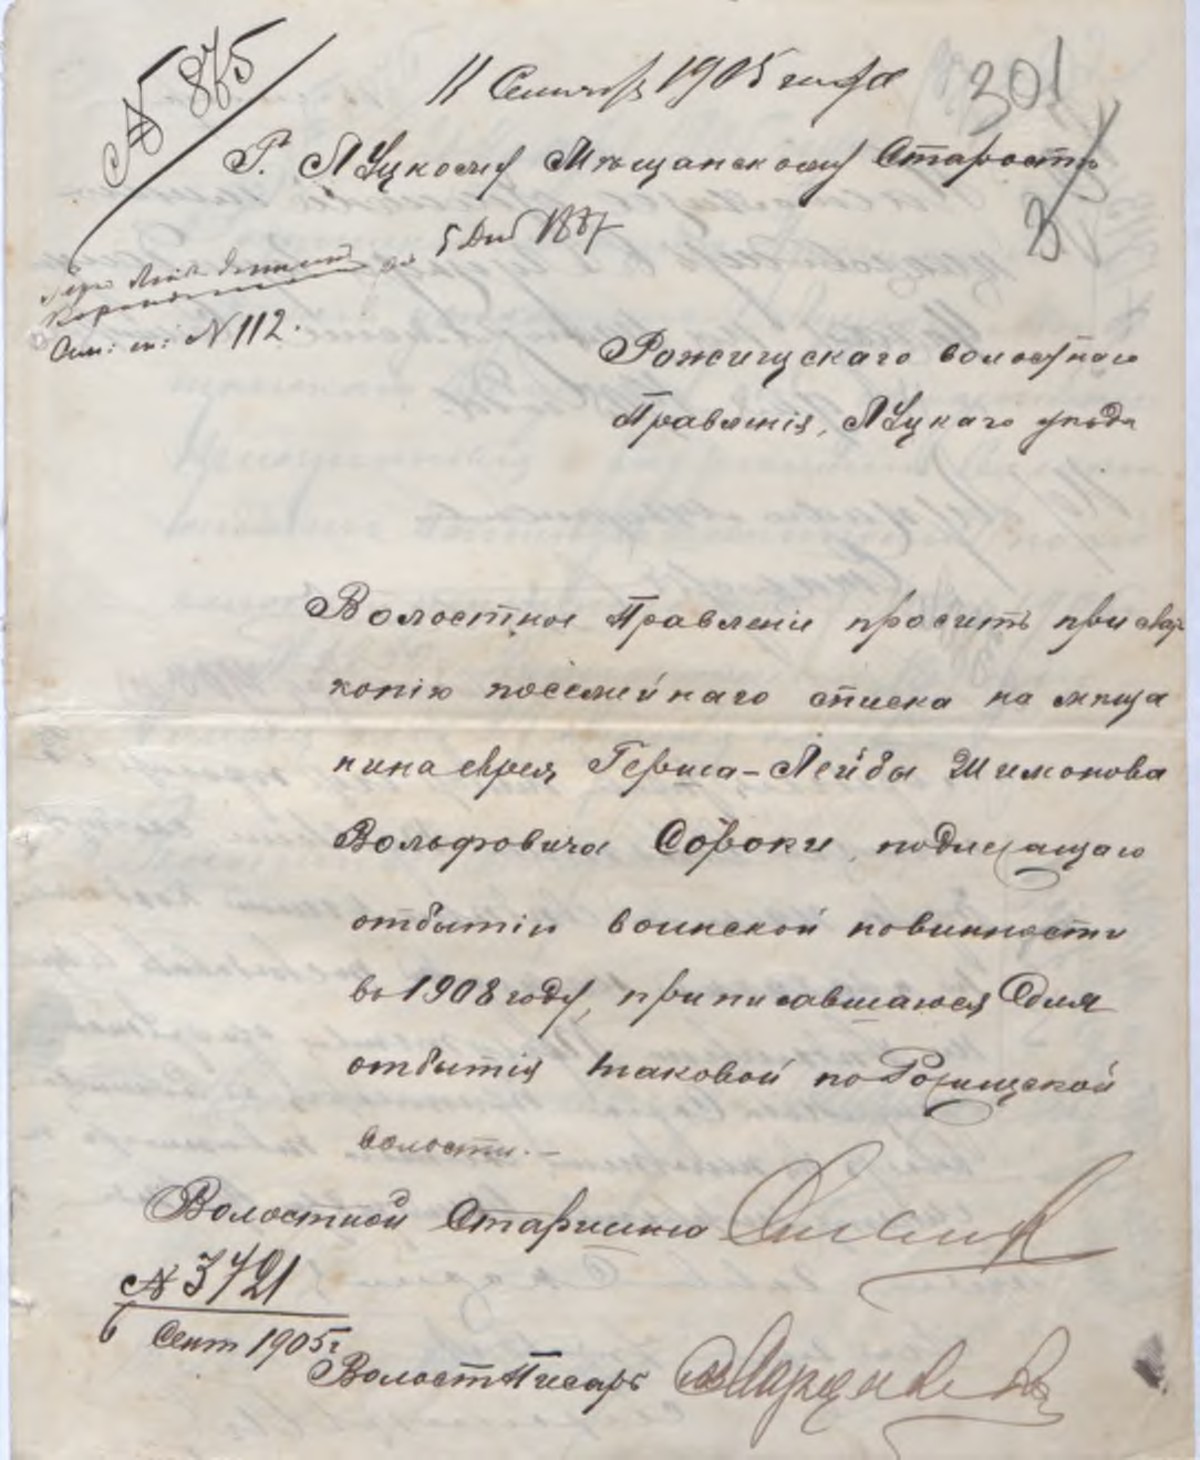 № 875
11 Сентября 1905 года
301
Г. Луцкому Мѣщанскому Старостѣ
3
5 Дек 1887
№ 112.
Рожищскаго волостнаго
Правленія, Луцкаго уѣзда
Волостное Правленіе проситъ при
копію посемейнаго списка на мѣща
нина еврея Герша-Лейбы Шимонова
Вольфовича Сороки, подлежащаго
отбытію воинской повинности
въ 1908 году, приписавшагося для
отбытія таковой по Рожищской
волости.-
Волостной Старшина
№ 3421
6 Сент 1905 г
Волост Писарь